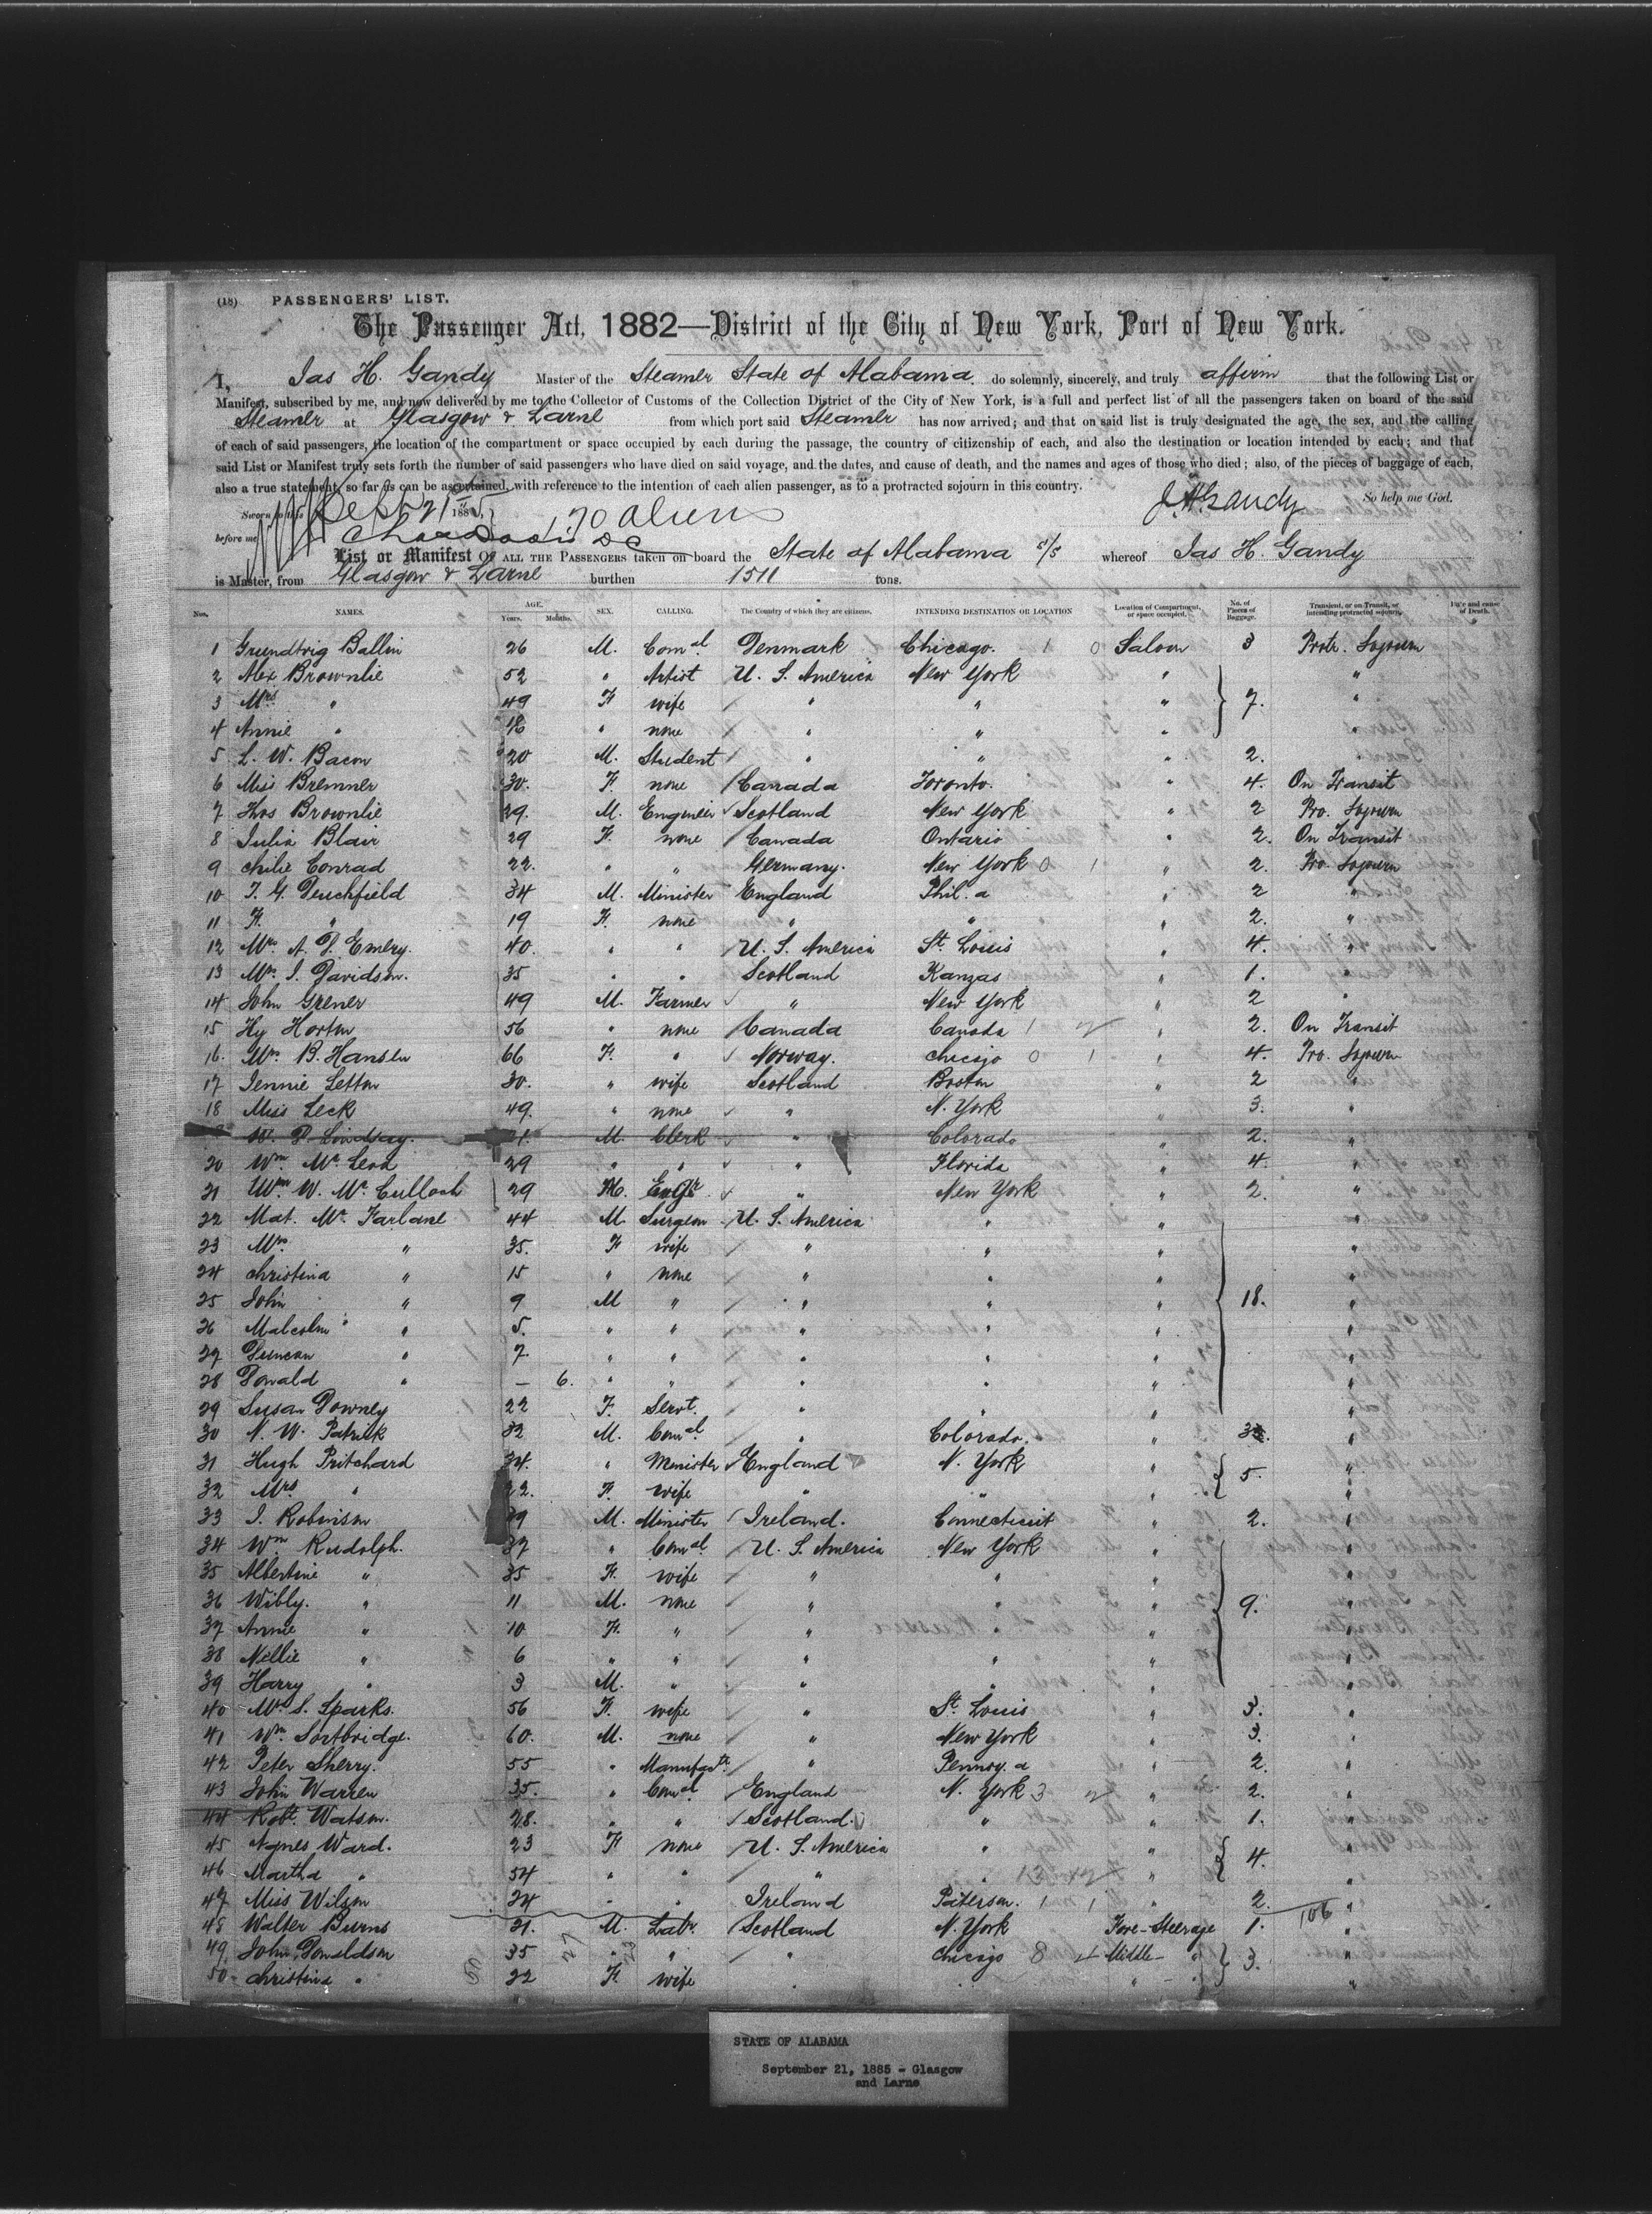 (18) PASSENGERS' LIST.
The Passenger Act, 1882—District of the City of New York, Port of New York.
I, Jas H. Gandy Master of the Steamer State of Alabama do solemnly, sincerely, and truly affirm that the following List or
Manifest, subscribed by me, and now delivered by me to the Collector of Customs of the Collection District of the City of New York, is a full and perfect list of all the passengers taken on board of the said
Steamer at Glasgow & Larne from which port said Steamer has now arrived; and that on said list is truly designated the age, the sex, and the calling
of each of said passengers, the location of the compartment or space occupied by each during the passage, the country of citizenship of each, and also the destination or location intended by each; and that
said List or Manifest truly sets forth the number of said passengers who have died on said voyage, and the dates, and cause of death, and the names and ages of those who died; also, of the pieces of baggage of each,
also a true statement, so far as can be ascertained, with reference to the intention of each alien passenger, as to a protracted sojourn in this country.
Sworn to this Sept 21st 1885 J H Gandy So help me God.
before me 170 aliens
List or Manifest OF ALL THE PASSENGERS taken on board the State of Alabama S/S whereof Jas H. Gandy
is Master, from Glasgow & Larne burthen 1511 tons.
Nos. NAMES. AGE. Years. Months. SEX. CALLING. The Country of which they are citizens. INTENDING DESTINATION OR LOCATION Location of Compartment, or space occupied. No. of Pieces of Baggage. Transient, or on Transit, or intending protracted sojourn. Date and cause of Death.
1 Grundtvig Ballin 26 M. Comal Denmark Chicago. 1 0 Saloon 3 Protr. Sojourn
2 Alex Brownlie 52 " Artist U. S. America New York " "
3 Mrs " 49 F wife " " " 7. "
4 Annie " 18 " none " " " "
5 L. W. Bacon 20 M. Student " " " 2. "
6 Miss Bremner 30. F. none Canada Toronto. " 4. On Transit
7 Thos Brownlie 29. M. Engineer Scotland New York " 2 Pro. Sojourn
8 Julia Blair 29 F. none Canada Ontario " 2. On Transit
9 Chilie Conrad 22. " " Germany. New York 0 1 " 2. Pro. Sojourn
10 T. G. Deuchfield 34 M. Minister England Phil.a " 2 "
11 F. " 19 F. none " " " 2. "
12 Mrs A. D. Emery. 40. " " U. S. America St. Louis " 4. "
13 Mrs J. Davidson. 35 " " Scotland Kanzas " 1. "
14 John Grener 49 M. Farmer " New York " 2 "
15 Hy Horton 56 " none Canada Canada 1 2 " 2. On Transit
16. Mrs B. Hansen 66 F. " Norway. Chicago 0 1 " 4. Pro. Sojourn
17 Jennie Letton 30. " wife Scotland Boston " 2 "
18 Miss Leck 49. " none " N. York " 3. "
P. Lindsay. M. Clerk " Colorado " 2. "
20 Wm. Mc Leod 29 " " " Florida " 4. "
21 Wm W. Mc Culloch 29 M. Engr " New York " 2. "
22 Mat. Mc Farlane 44 M. Surgeon U. S. America " " "
23 Mrs " 35. F wife " " " "
24 Christina " 15 " none " " " "
25 John " 9 M " " " " 18. "
26 Malcolm " 5. " " " " " "
27 Duncan " 7. " " " " " "
28 Donald " — 6. " " " " " "
29 Susan Downey 22 F. Servt. " " " "
30 N. W. Patrick 32 M. Comal " Colorado. " "
31 Hugh Pritchard 34. " Minister England N. York " 5. "
32 Mrs " 22. F. wife " " " "
33 J. Robinson 39 M. Minister Ireland. Connecticut " 2. "
34 Wm Rudolph. 37 " Comal U. S. America New York " "
35 Albertine " 35 F. wife " " " "
36 Wibly. " 11 M. none " " " 9. "
37 Annie " 10 F. " " " " "
38 Nellie " 6 " " " " " "
39 Harry " 3 M. " " " " "
40 Mrs S. Sparks. 56 F. wife " St. Louis " 3. "
41 Wm Sortbridge. 60. M. none " New York " 3. "
42 Peter Sherry. 55 " Manufactr " Pennsy.a " 2. "
43 John Warren 35. " Comal England N. York 3 2 " 2. "
44 Robt. Watson. 28. " " Scotland. " " 1. "
45 Agnes Ward. 23 F none U. S. America " " 4. "
46 Martha " 54 " " " " " "
47 Miss Wilson 24 " " Ireland Paterson. 1 1 " 2. "
48 Walter Burns 21. M. Labr Scotland N. York Fore-Steerage 1. 106 "
49 John Donaldson 35 " " " Chicago 8 4 Middle- " 3. "
50 Christina " 22 F. wife " " " " "
STATE OF ALABAMA
September 21, 1885 - Glasgow
and Larne